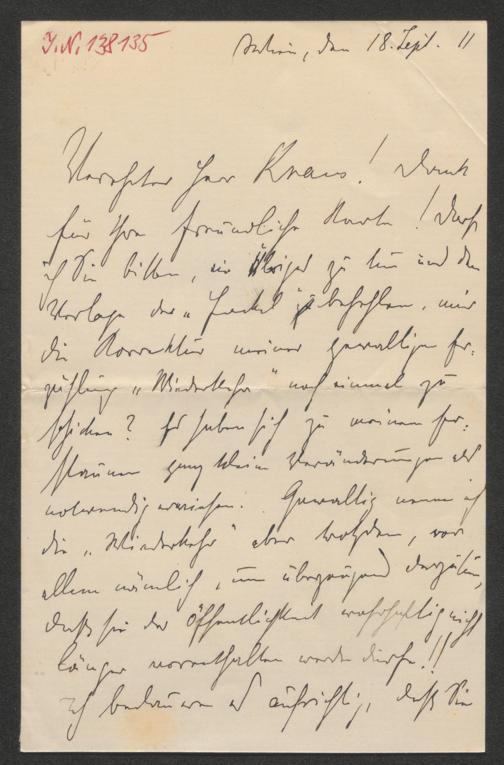 I.N. 138135
den 18. Sept. 11
Verehrter Herr Kraus! Dank
für Ihre freundliche Karte! Darf
ich Sie bitten, ein Übriges zu tun und den
Verlage der „Fackel" zu befehlen, mir
die Korrektur meiner gewaltigen Er-
zählung „Wiederkehr" noch einmal zu
schicken? Es haben sich zu meinem Er-
staunen ganz kleine Veränderungen als
notwendig erwiesen. Gewaltig nenne ich
die „Wiederkehr" aber trotzdem, vor
allem nämlich, um überzeugend darzutun,
daß sie der Öffentlichkeit wahrhaftig nicht
länger vorenthalten werden dürfe!!
Ich bedauere es aufrichtig, daß Sie